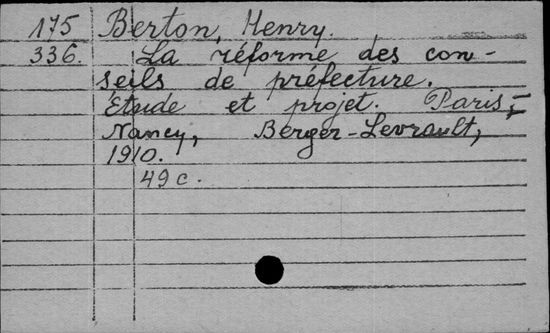 175 Berton, Henry.
336. La réforme des con-
seils de préfecture.
Etude et projet. Paris,-
Nancy, Berger-Levrault,
1910.
49 c.